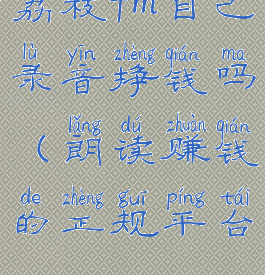 荔枝fm自己
lù yīn zhèng qián ma
录音挣钱吗
lǎng dú zhuàn qián
（朗读赚钱
de zhèng guī píng tái
的正规平台